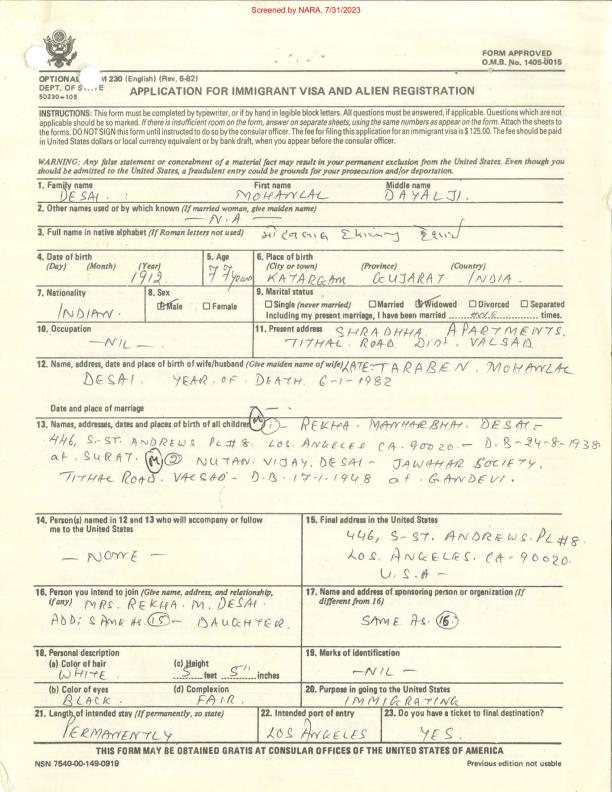 Screened by NARA, 7/31/2023
FORM APPROVED
O.M.B. No. 1405-0015
OPTIONAL M 230 (English) (Rev. 6-82)
DEPT. OF STATE
50230-105
APPLICATION FOR IMMIGRANT VISA AND ALIEN REGISTRATION
INSTRUCTIONS: This form must be completed by typewriter, or if by hand in legible block letters. All questions must be answered, if applicable. Questions which are not
applicable should be so marked. If there is insufficient room on the form, answer on separate sheets, using the same numbers as appear on the form. Attach the sheets to
the forms. DO NOT SIGN this form until instructed to do so by the consular officer. The fee for filing this application for an immigrant visa is $125.00. The fee should be paid
in United States dollars or local currency equivalent or by bank draft, when you appear before the consular officer.
WARNING: Any false statement or concealment of a material fact may result in your permanent exclusion from the United States. Even though you
should be admitted to the United States, a fraudulent entry could be grounds for your prosecution and/or deportation.
1. Family name First name Middle name
DESAI. MOHANLAL DAYALJI.
2. Other names used or by which known (If married woman, give maiden name)
— N.A —
3. Full name in native alphabet (If Roman letters not used)
4. Date of birth 5. Age 6. Place of birth
(Day) (Month) (Year) (City or town) (Province) (Country)
1912. 77 years KATARGAM GUJARAT INDIA.
7. Nationality 8. Sex 9. Marital status
INDIAN. Male Female Single (never married) Married Widowed Divorced Separated
Including my present marriage, I have been married ONE times.
10. Occupation 11. Present address SHRADHHA APARTMENTS.
— NIL — TITHAL ROAD. Dist. VALSAD.
12. Name, address, date and place of birth of wife/husband (Give maiden name of wife) LATE: TARABEN. MOHANLAL
DESAI. YEAR. OF. DEATH. 6-1-1982
Date and place of marriage —
13. Names, addresses, dates and places of birth of all children M 1 - REKHA. MANHARBHAI. DESAI -
446, S-ST. ANDREWS PL # 8. LOS. ANGELES CA- 90020. - D.B-24-8-1938
at. SURAT. M 2 NUTAN. VIJAY. DESAI - JAWAHAR SOCIETY.
TITHAL ROAD. VALSAD - D.B. 17-1-1948 at. GANDEVI.
14. Person(s) named in 12 and 13 who will accompany or follow
me to the United States
— NONE —
15. Final address in the United States
446, S-ST. ANDREWS. PL # 8.
LOS. ANGELES. CA- 90020.
U.S.A -
16. Person you intend to join (Give name, address, and relationship,
if any) MRS. REKHA. M. DESAI.
ADD: SAME AS. 15 - DAUGHTER.
17. Name and address of sponsoring person or organization (If
different from 16)
SAME AS. 16.
18. Personal description
(a) Color of hair (c) Height
WHITE. 5 feet 5" inches
(b) Color of eyes (d) Complexion
BLACK. FAIR.
19. Marks of identification
— NIL —
20. Purpose in going to the United States
IMMIGRATING
21. Length of intended stay (If permanently, so state) 22. Intended port of entry 23. Do you have a ticket to final destination?
PERMANENTLY LOS ANGELES YES.
THIS FORM MAY BE OBTAINED GRATIS AT CONSULAR OFFICES OF THE UNITED STATES OF AMERICA
NSN 7540-00-149-0919 Previous edition not usable